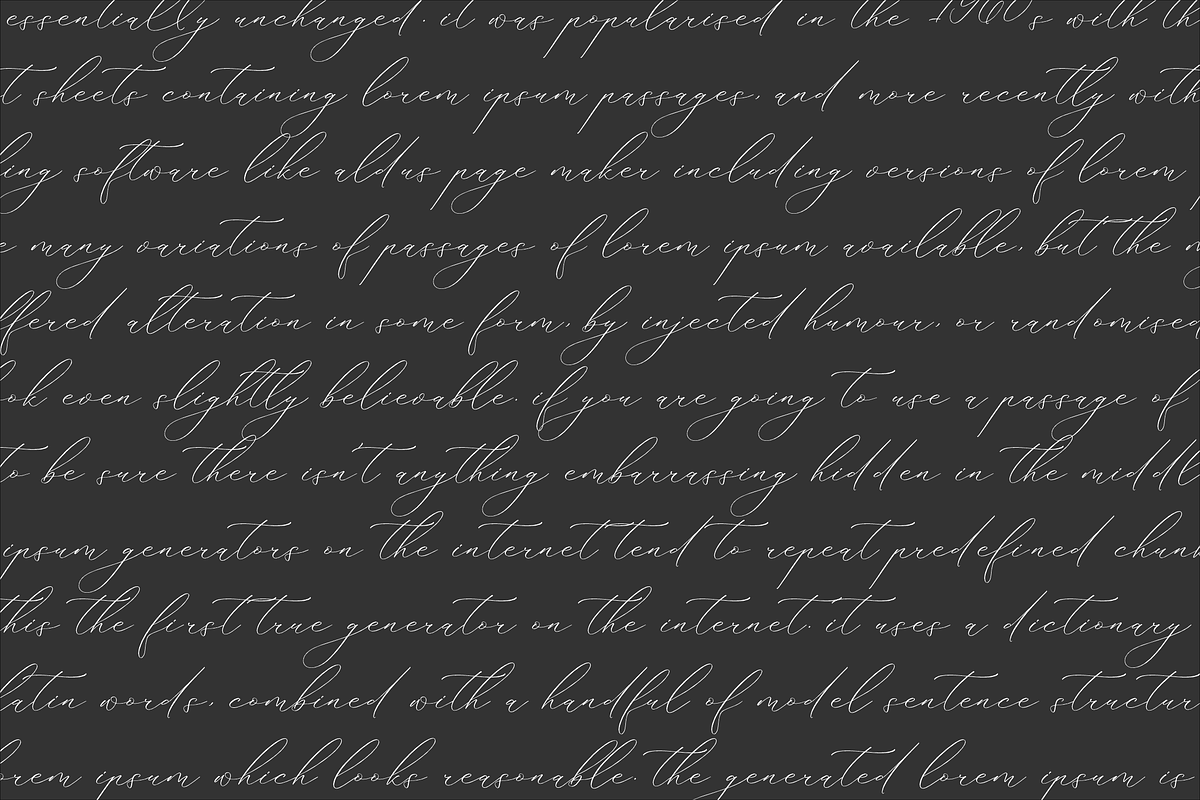 essentially unchanged. it was popularised in the 1960s with th
t sheets containing lorem ipsum passages, and more recently with
ing software like aldus page maker including versions of lorem
e many variations of passages of lorem ipsum available, but the m
ffered alteration in some form, by injected humour, or randomised
ok even slightly believable. if you are going to use a passage of
to be sure there isn't anything embarrassing hidden in the middl
ipsum generators on the internet tend to repeat predefined chun
this the first true generator on the internet. it uses a dictionary
latin words, combined with a handful of model sentence structur
orem ipsum which looks reasonable. the generated lorem ipsum is